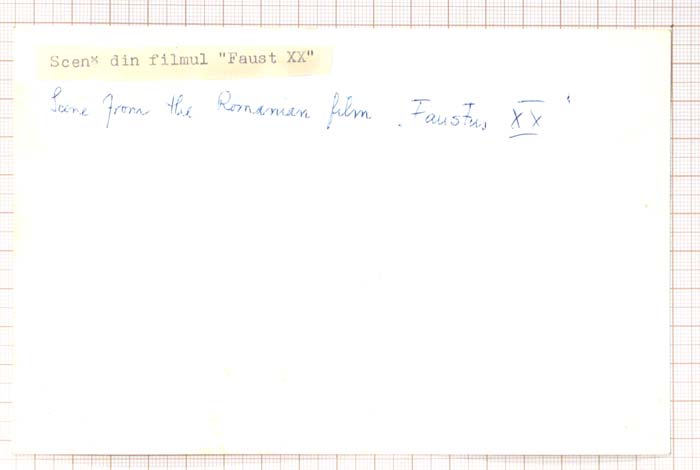 Scen* din filmul "Faust XX"
Scene from the Romanian film "Faustus XX"